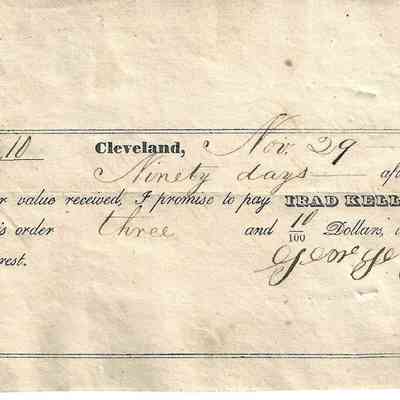 10 Cleveland, Nov. 29
Ninety days af
r value received, I promise to pay IRAD KELL
is order three and 10/100 Dollars,
rest. George